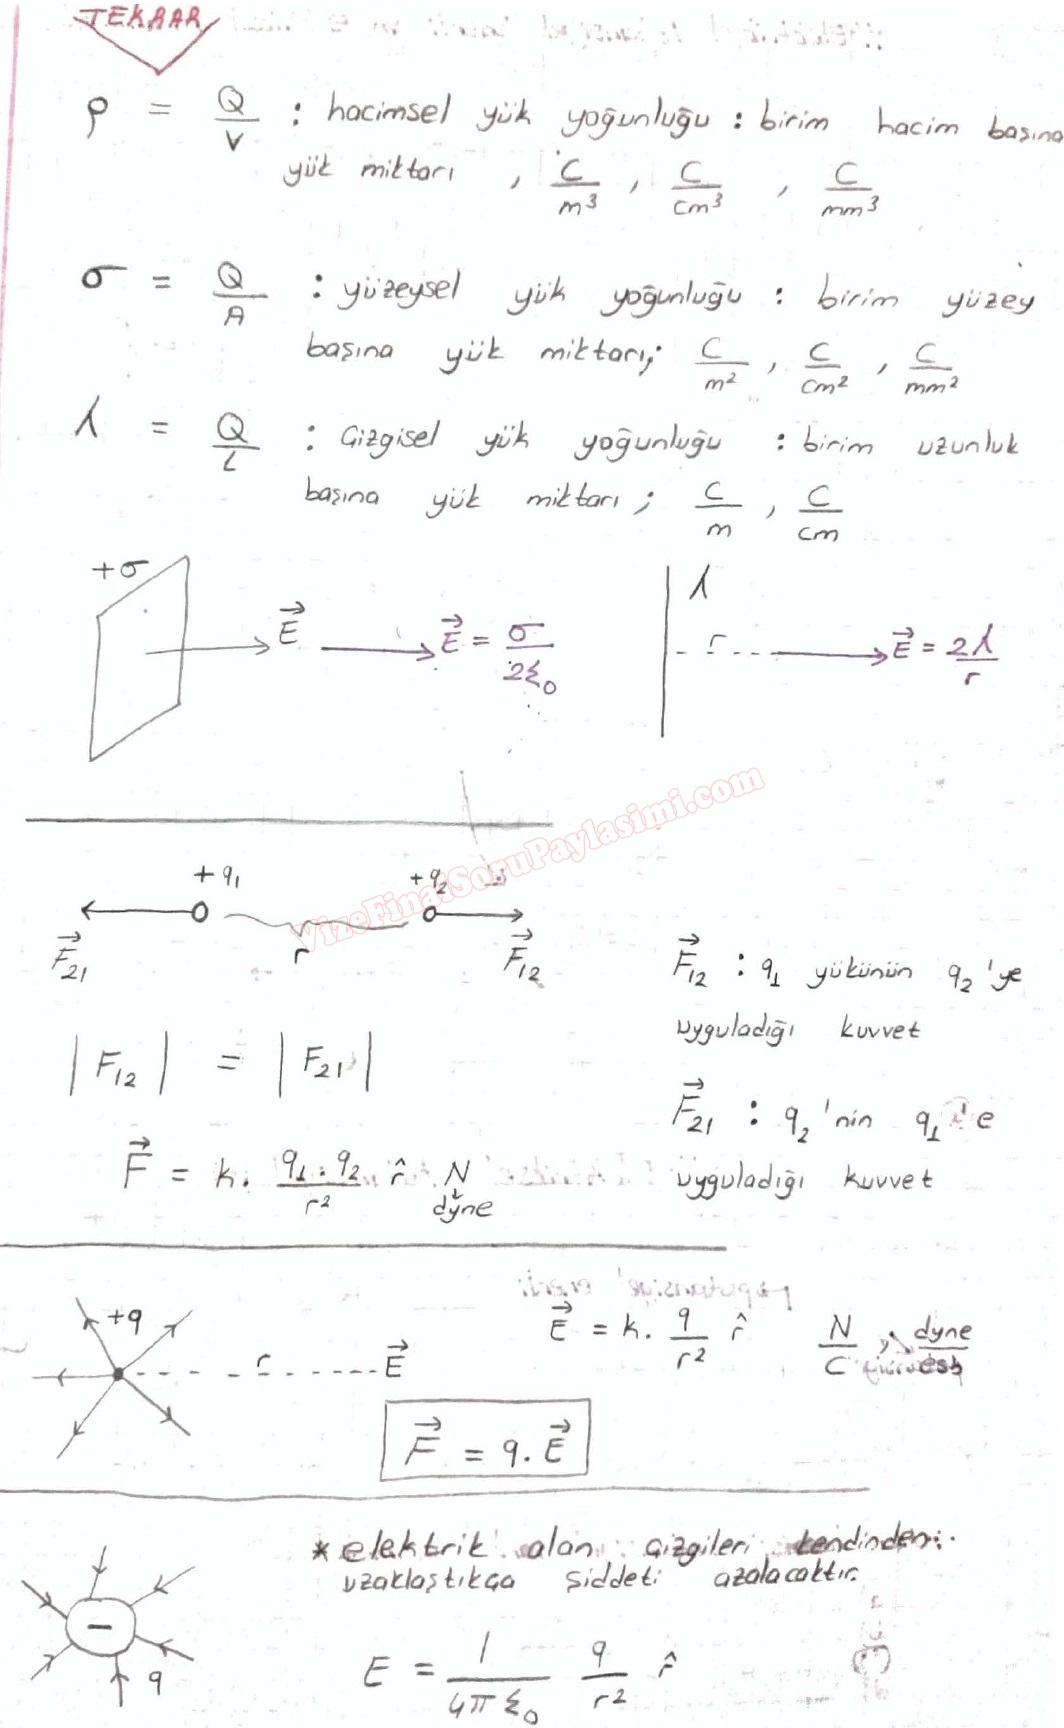 TEKRAR
ρ = Q/V : hacimsel yük yoğunluğu : birim hacim başına
yük miktarı , C/m³ , C/cm³ , C/mm³
σ = Q/A : yüzeysel yük yoğunluğu : birim yüzey
başına yük miktarı; C/m² , C/cm² , C/mm²
λ = Q/L : Çizgisel yük yoğunluğu : birim uzunluk
başına yük miktarı ; C/m , C/cm
+σ
E⃗
E⃗ = σ/2ε₀
λ
r
E⃗ = 2λ/r
VizeFinalSoruPaylasimi.com
+q₁
+q₂
F⃗₂₁
r
F⃗₁₂
F⃗₁₂ : q₁ yükünün q₂'ye
uyguladığı kuvvet
|F₁₂| = |F₂₁|
F⃗₂₁ : q₂'nin q₁'e
uyguladığı kuvvet
F⃗ = k. q₁.q₂/r² r̂ N
dyne
+q
r
E⃗
E⃗ = k. q/r² r̂
N/C , dyne/esb
F⃗ = q.E⃗
* elektrik alan çizgileri kendinden
uzaklaştıkça şiddeti azalacaktır.
−
q
E = 1/4πε₀ q/r² r̂